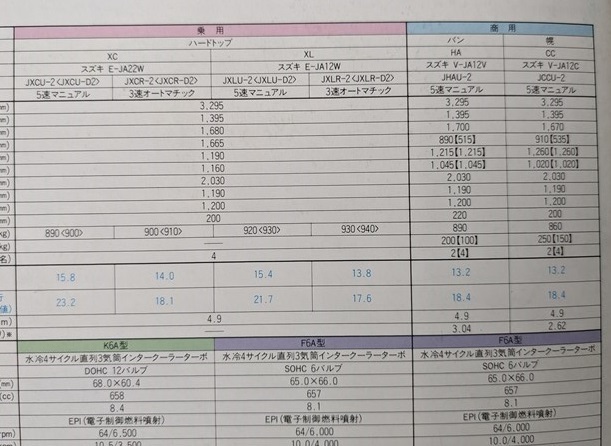 乗 用 商 用
ハードトップ バン 幌
XC XL HA CC
スズキ E-JA22W スズキ E-JA12W スズキ V-JA12V スズキ V-JA12C
JXCU-2<JXCU-D2> JXCR-2<JXCR-D2> JXLU-2<JXLU-D2> JXLR-2<JXLR-D2> JHAU-2 JCCU-2
5速マニュアル 3速オートマチック 5速マニュアル 3速オートマチック 5速マニュアル 5速マニュアル
mm) 3,295 3,295 3,295
mm) 1,395 1,395 1,395
mm) 1,680 1,700 1,670
mm) 1,665 890【515】 910【535】
mm) 1,190 1,215【1,215】 1,260【1,260】
mm) 1,160 1,045【1,045】 1,020【1,020】
mm) 2,030 2,030 2,030
mm) 1,190 1,190 1,190
mm) 1,200 1,200 1,200
mm) 200 220 200
kg) 890<900> 900<910> 920<930> 930<940> 890 860
kg) — 200【100】 250【150】
名) 4 2【4】 2【4】
15.8 14.0 15.4 13.8 13.2 13.2
行
値) 23.2 18.1 21.7 17.6 18.4 18.4
m) 4.9 4.9 4.9
— 3.04 2.62
K6A型 F6A型 F6A型
水冷4サイクル直列3気筒インタークーラーターボ 水冷4サイクル直列3気筒インタークーラーターボ 水冷4サイクル直列3気筒インタークーラーターボ
DOHC 12バルブ SOHC 6バルブ SOHC 6バルブ
(mm) 68.0×60.4 65.0×66.0 65.0×66.0
(cc) 658 657 657
8.4 8.1 8.1
EPI(電子制御燃料噴射) EPI(電子制御燃料噴射) EPI(電子制御燃料噴射)
rpm) 64/6,500 64/6,000 64/6,000
rpm) 10.5/3,500 10.0/4,000 10.0/4,000